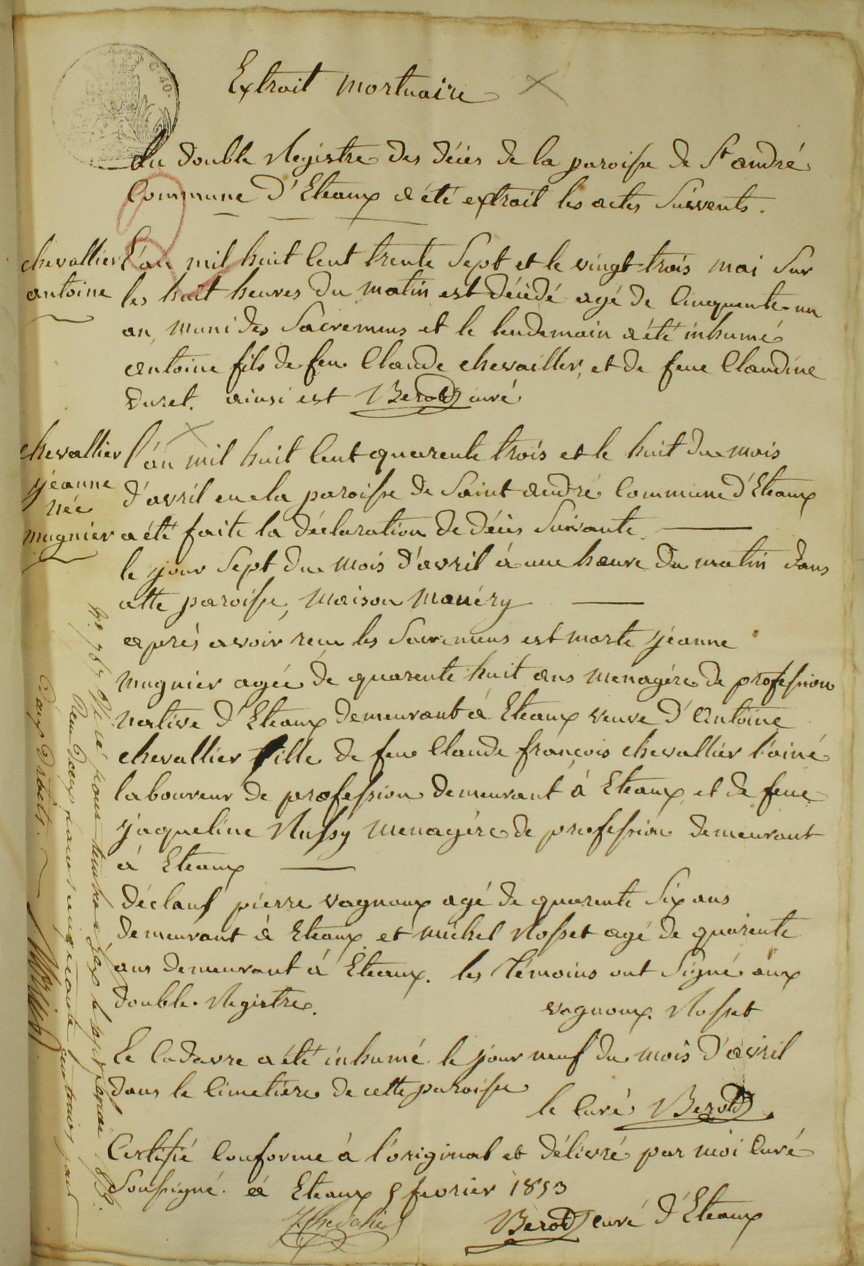 Extrait mortuaire
Du double Registre des décès de la paroisse de St andré
Commune d'Eteaux a été extrait les actes Suivents.
chevallier
antoine
L'an mil huit Cent trente Sept et le vingt-trois mai Sur
les huit heures du matin est décédé agé de Cinquente un
an, muni des Sacremens et le lendemain a été inhumé
antoine fils de feu Claude chevallier, et de feue Claudine
Duret. ainsi est Berod curé
chevallier
jéanne
née
mugnier
l'an mil huit Cent quarente trois et le huit du mois
d'avril en la paroisse de Saint andré Commune d'Eteaux
a été faite la déclaration de décès Suivante
le jour Sept du mois d'avril à une heure du matin dans
cette paroisse, maison manéry
après avoir reçu les Sacremens est morte jéanne
mugnier agée de quarente huit ans menagère de profession
native d'Eteaux demeurant à Eteaux veuve d'Antoine
chevallier fille de feu Claude françois chevallier l'ainé
laboureur de profession demeurant à Eteaux, et de feue
jaqueline menagère de profession demeurant
à Eteaux
déclarans pierre vagnoux agé de quarente Six ans
demeurant à Eteaux et michel Rosset agé de quarente
ans demeurant à Eteaux. les témoins ont Signé aux
double Registre.
vagnoux. Rosset
Le Cadavre a été inhumé le jour neuf du mois d'avril
dans le Cimetière de cette paroisse
le Curé Berod
Certifié Conforme à l'original et délivré par moi Curé
Soussigné. à Eteaux 9 fevrier 1853
Berod curé d'Eteaux